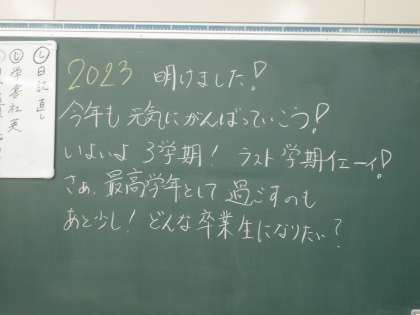 2023 明けました!
今年も 元気にがんばっていこう!
いよいよ 3学期! ラスト学期イエーイ!
さぁ、最高学年として 過ごすのも
あと少し! どんな卒業生になりたい?
日記直し